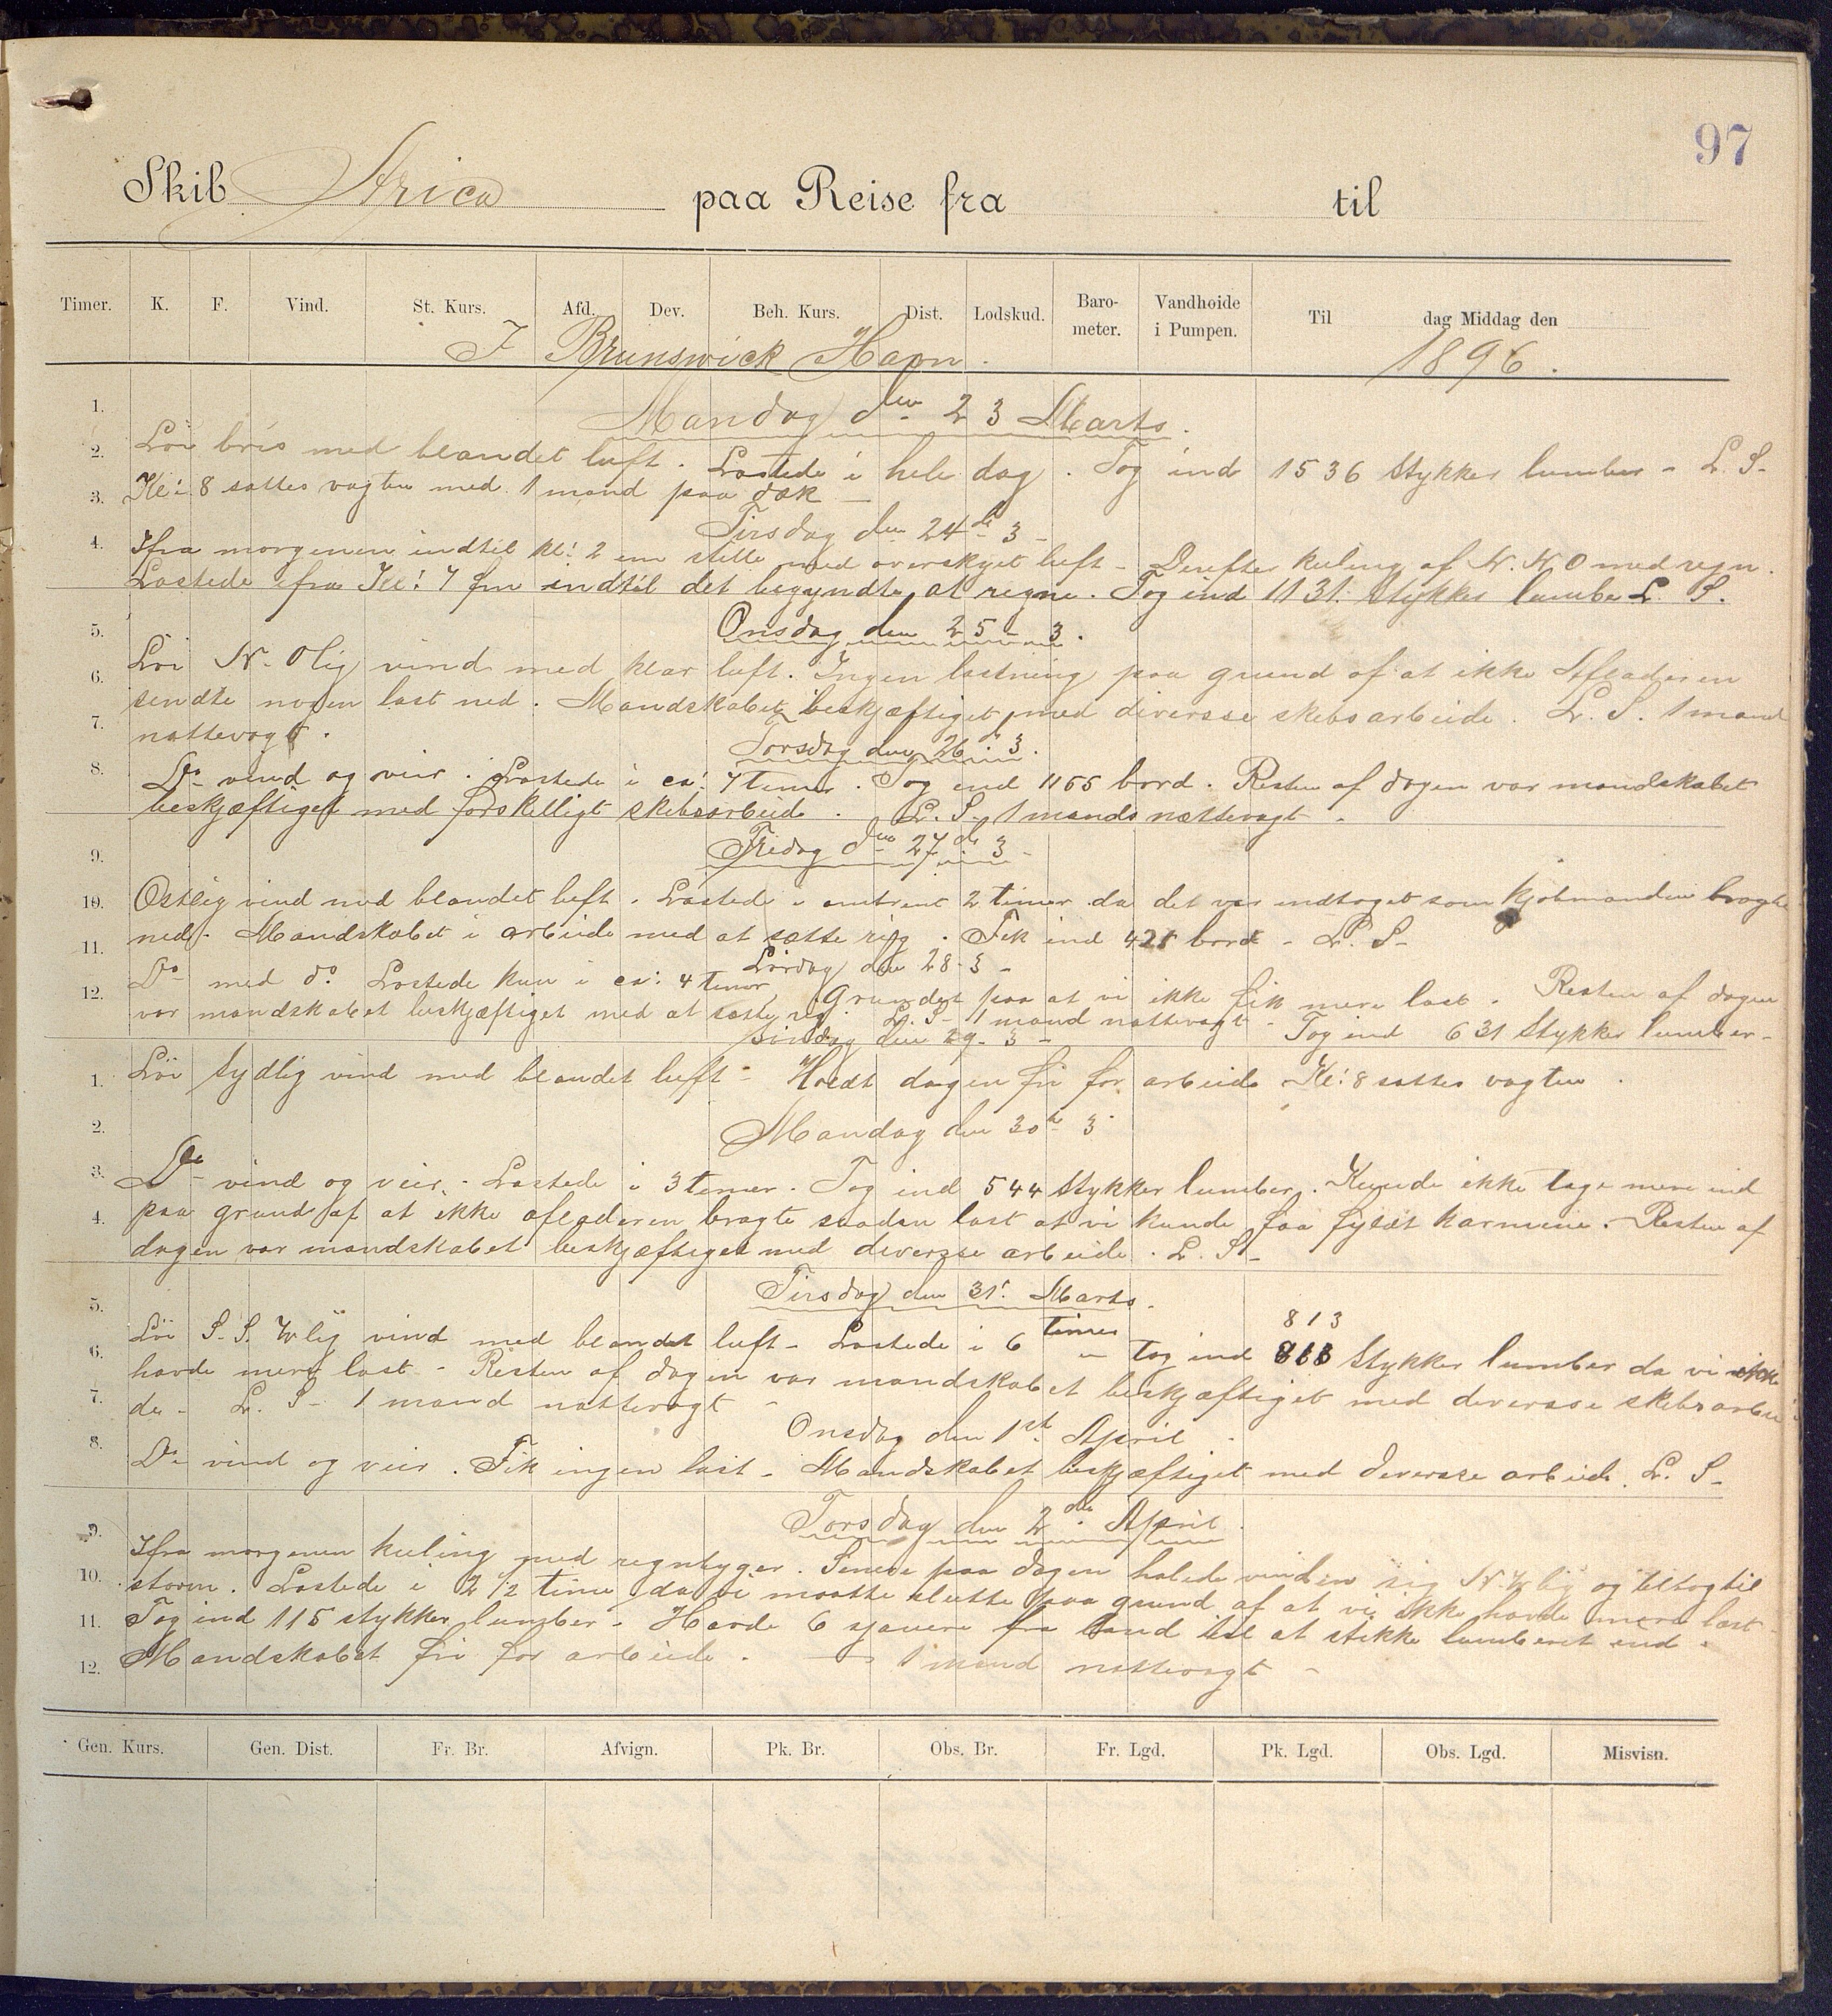 97
Skib Arica paa Reise fra til
Timer. K. F. Vind. St. Kurs. Afd. Dev. Beh. Kurs. Dist. Lodskud. Baro-meter. Vandhoide i Pumpen. Til dag Middag den
I Brunswick Havn. 1896.
1.
Mandag den 23 Marts.
2.
Löi bris med blandet luft. Lastede i hele dag. Tog ind 1536 Stykker lumber - L. S-
3.
Kl: 8 sattes vagten med 1 mand paa dæk -
Tirsdag den 24de 3 -
4.
Ifra morgenen indtil kl: 2 em stille med overskyet luft - Derefter kuling af N. N. O med regn.
Lastede ifra Kl: 7 fm indtil det begyndte at regne. Tog ind 1131 Stykker lumber L. S.
5.
Onsdag den 25 - 3.
6.
Löi N-Olig vind med klar luft. Ingen lastning paa grund af at ikke Afladeren
7.
sendte nogen last ned. Mandskabet beskjæftiget med diversse skibsarbeide. L. S. 1 mand
nattevagt.
Torsdag den 26de 3.
8.
Do vind og veir. Lastede i ca: 7 timer. Tog ind 1155 bord. Resten af dagen var mandskabet
beskjæftiget med forskelligt skibsarbeide. L. S. 1 mands nattevagt.
9.
Fredag den 27de 3 -
10.
Ostlig vind med blandet luft. Lastede i omtrent 2 timer da det var indtaget som kjøbmanden bragte
11.
ned. Mandskabet i arbeide med at sætte rig. Fik ind 421 bord - L. S-
Lördag den 28-3 -
12.
Do med do. Lastede kun i ca: 4 timer, Grundet paa at vi ikke fik mere last. Resten af dagen
var mandskabet beskjæftiget med at sætte rig. L. S- 1 mand nattevagt - Tog ind 631 Stykker lumber -
Söndag den 29-3 -
1.
Löi Sydlig vind med blandet luft - Holdt dagen fri for arbeide. Kl: 8 sattes vagten.
2.
Mandag den 30te 3
3.
Do vind og veir. Lastede i 3 timer. Tog ind 544 Stykker lumber. Kunde ikke tage mere ind
4.
paa grund af at ikke afladeren bragte saadan last at vi kunde faa fyldt karmene. Resten af
dagen var mandskabet beskjæftiget med diversse arbeide. L. S -
5.
Tirsdag den 31: Marts.
813
6.
Löi S. S. Wlig vind med blandet luft - Lastede i 6 timer - tog ind Stykker lumber da vi ikke
havde mere last - Resten af dagen var mandskabet beskjæftiget med diversse skibsarbei
7.
de - L. S - 1 mand nattevagt -
Onsdag den 1st April
8.
Do vind og veir. Fik ingen last - Mandskabet beskjæftiget med diversse arbeide. L. S -
9.
Torsdag den 2den April
Ifra morgenen kuling med regnbyger. Senere paa dagen halede vinden sig N.Wlig og tiltog til
10.
storm. Lastede i 2 1/2 time da vi maatte slutte paa grund af at vi ikke havde mere last -
11.
Tog ind 115 stykker lumber - Havde 6 sjauere fra land til at stikke lumberet ind.
12.
Mandskabet fri for arbeide. - 1 mand nattevagt -
Gen. Kurs. Gen. Dist. Fr. Br. Afvign. Pk. Br. Obs. Br. Fr. Lgd. Pk. Lgd. Obs. Lgd. Misvisn.